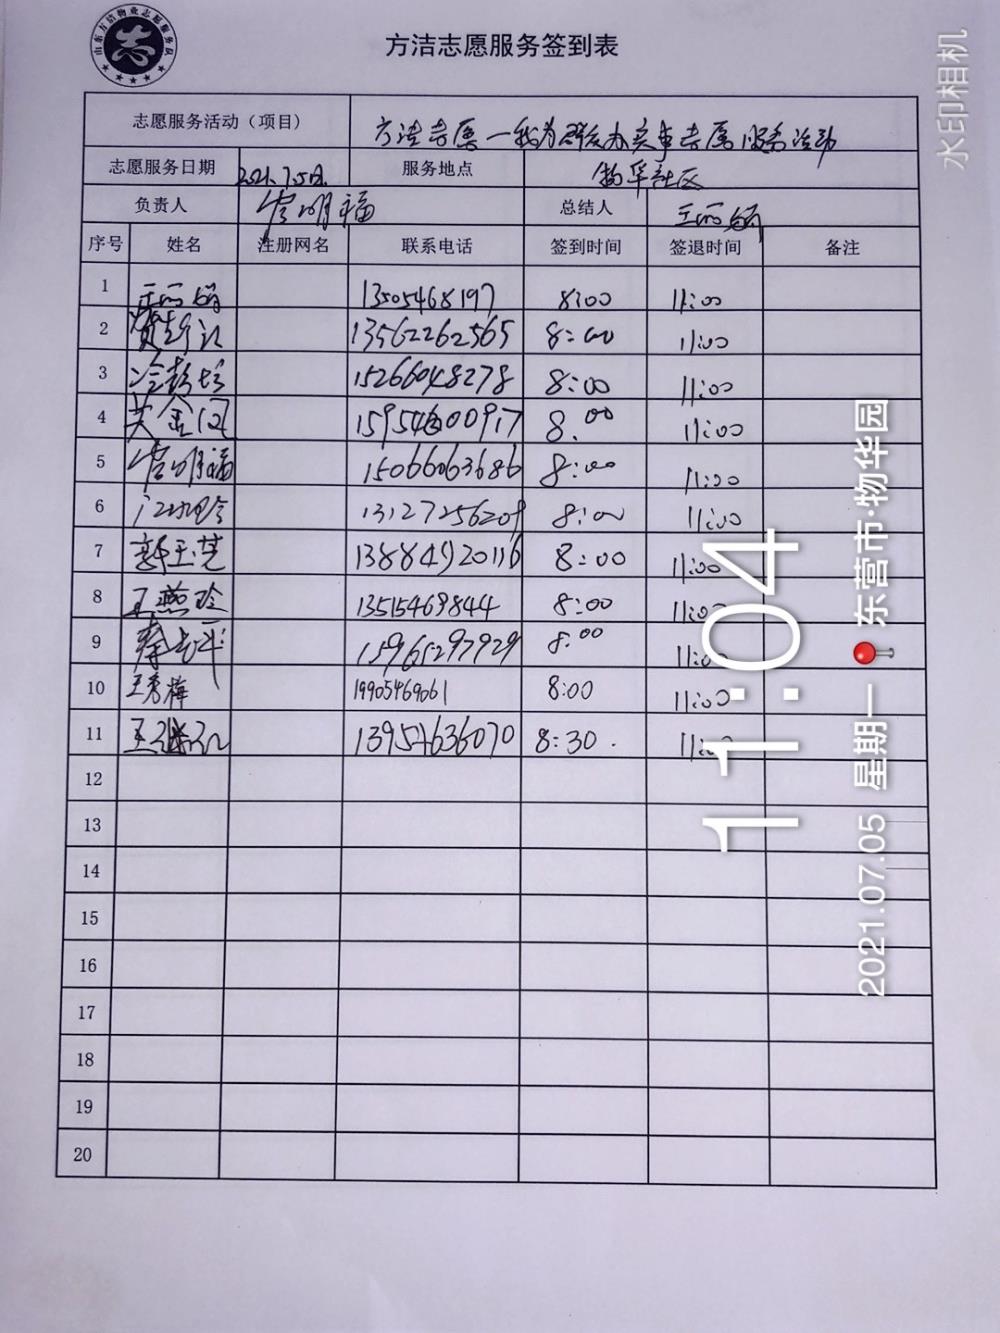 山东方洁物业志愿服务队
志
方洁志愿服务签到表
志愿服务活动（项目） 方洁志愿一我为群众办实事志愿服务活动
志愿服务日期 2021.7.5日 服务地点 物华社区
负责人 明福 总结人 王丽娟
序号 姓名 注册网名 联系电话 签到时间 签退时间 备注
1 王丽娟 13505468197 8:00 11:00
2 13562262565 8:00 11:00
3 15266048278 8:00 11:00
4 黄金凤 15954600917 8:00 11:00
5 明福 15066063686 8:00 11:00
6 13127256209 8:00 11:00
7 郭玉芝 13884920116 8:00 11:00
8 王燕玲 13515469844 8:00 11:00
9 15965297929 8:00 11:00
10 王秀梅 19905469061 8:00 11:00
11 王 13954636070 8:30 11:00
12
13
14
15
16
17
18
19
20
11:04
2021.07.05 星期一 东营市·物华园
水印相机